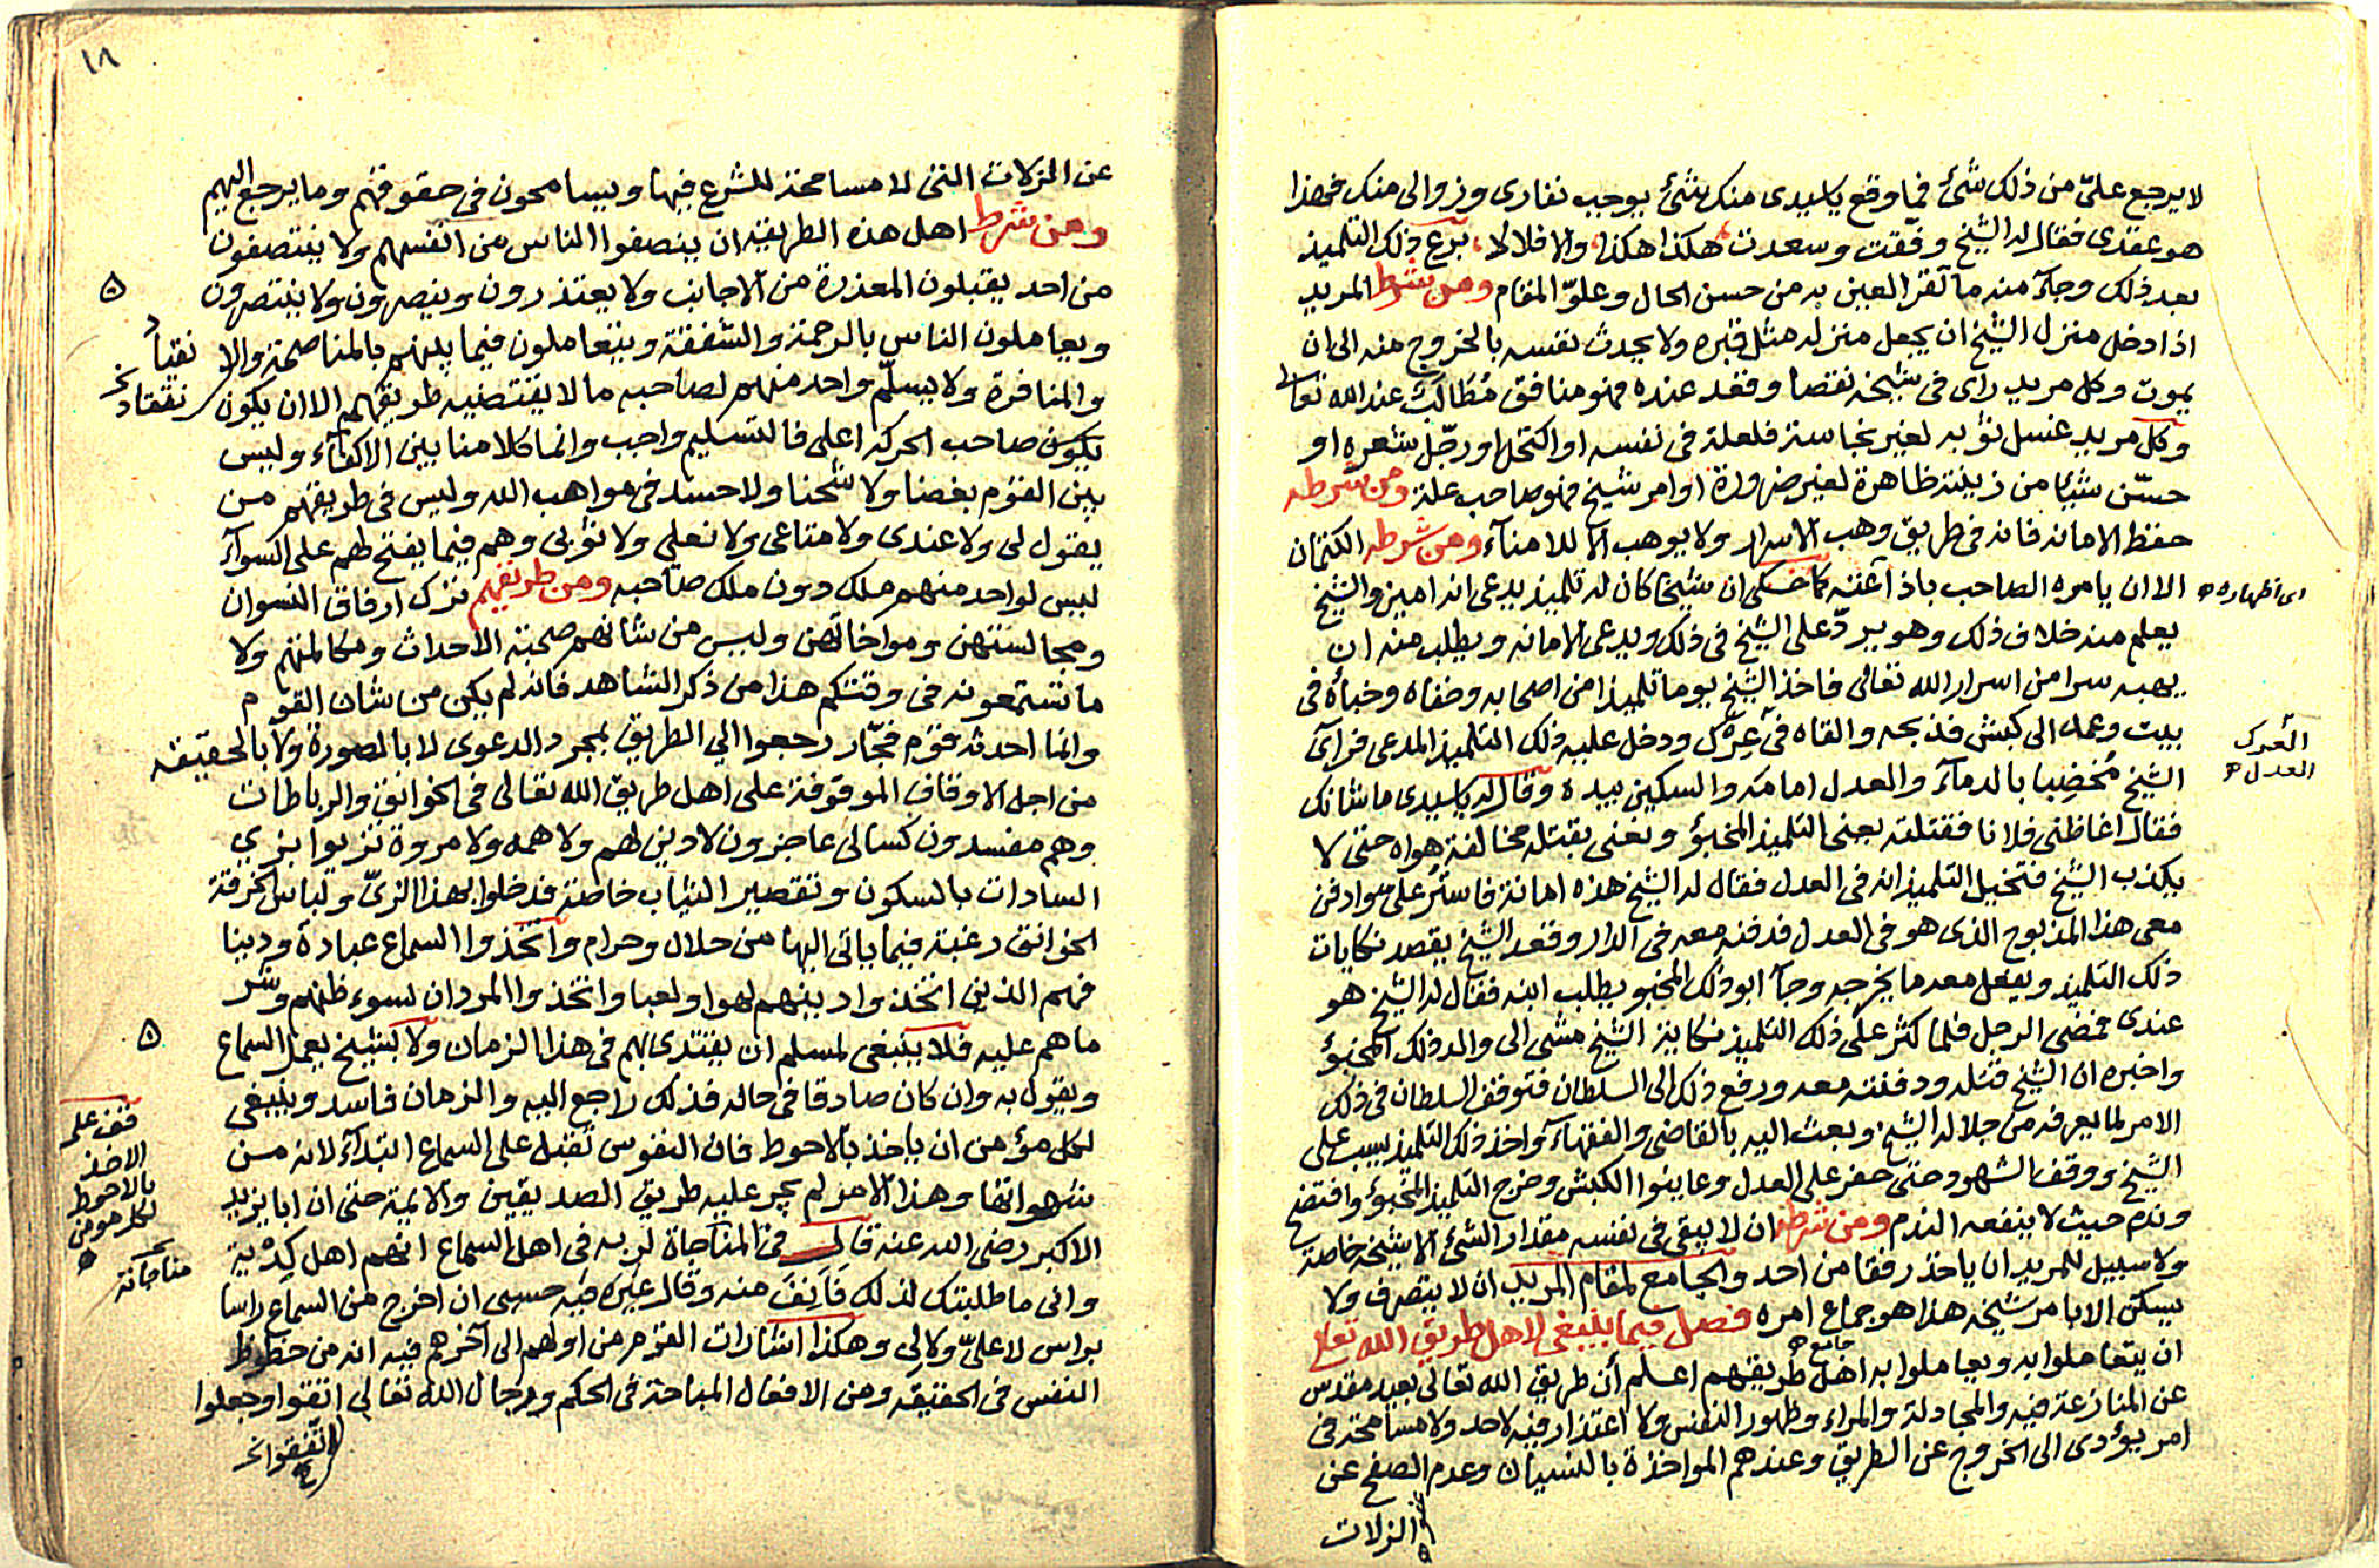 لا يرجع عليّ من ذلك شئ فما وقع يا سيدى منك شئ يوجب نفارى وزوالى منك فهذا
هو عقدى فقال له الشيخ وفّقت وسعدت هكذا هكذا والا فلا لا برع ذلك التلميذ
بعد ذلك وجآء منه ما تقر العين به من حسن الحال وعلوّ المقام ومن شرط المريد
اذا دخل منزل الشيخ ان يجعل منزله مثل قبره ولا يحدث نفسه بالخروج منه الى ان
يموت وكل مريد راى فى شيخه نقصا وقعد عنده فهو منافق مُطَالَب عند الله تعالى
وكل مريد غسل ثوبه لغير نجاسة فلعلة فى نفسه او اكتحل او رجّل شعره او
حسّن شيئا من زينته ظاهرة لغير ضرورة او امر شيخ فهو صاحب علة ومن شرطه
حفظ الامانه فانه فى طريق وهب الاسرار ولا يوهب الا للامنآء ومن شرطه الكتمان
الا ان يامره الصاحب باذاعته كما حكى ان شيخا كان له تلميذ يدعى انه امين والشيخ
اى اظهاره
يعلم منه خلاف ذلك وهو يردّ على الشيخ فى ذلك ويدعى الامانه ويطلب منه ان
يهبه سرا من اسرار الله تعالى فاخذ الشيخ يوما تلميذا من اصحابه وخفاه وخبأه فى
بيت وعمد الى كبش فذبحه والقاه فى عدل ودخل عليه ذلك التلميذ المدعى فرآى
العدل
الشيخ مُخضبا بالدمآء والعدل امامه والسكين بيده وقال له يا سيدى ما شانك
فقال اغاظنى فلانا فقتلته يعنى التلميذ المخبؤ ونعنى بقتله مخالفة هواه حتى لا
يكذب الشيخ فتخيل التلميذ انه فى العدل فقال له الشيخ هذه امانة فاستُر علىّ وادفن
معى هذا المذبوح الذى هو فى العدل فدفنه معه فى الدار وقعد الشيخ يقصد نكايات
ذلك التلميذ ويفعل معه ما يخرجه وجآ ابو ذلك المخبو يطلب ابنه فقال له الشيخ هو
عندى فمضى الرجل فلما كثر على ذلك التلميذ نكاية الشيخ مشى الى والد ذلك المخبؤ
واخبره ان الشيخ قتله ودفنته معه ورفع ذلك الى السلطان فتوقف السلطان فى ذلك
الامر لما يعرفه من جلالة الشيخ وبعث اليه بالقاضى والفقهآء واخذ ذلك التلميذ يسب على
الشيخ ووقف الشهود حتى حفر على العدل وعاينوا الكبش وخرج التلميذ المخبؤ وافتضح
وندم حيث لا ينفعه الندم ومن شرطه ان لا يبقى فى نفسه مقدار الشئ الا شيخه خاصة
ولا سبيل للمريد ان ياخذ رفقا من احد والجامع لمقام المريد ان لا يتصرف ولا
يسكن الا بامر شيخه هذا هو جماع امره فصل فيما ينبغى لاهل طريق الله تعالى
جامع
ان يتعاملوا به ويعاملوا به اهل طريقهم اعلم أن طريق الله تعالى بعيد مقدس
عن المنازعة فيه والمجادلة والمراء وظهور النفس ولا اعتذار فيه لاحد ولا مسامحة فى
امر يؤدى الى الخروج عن الطريق وعندهم المواخذة بالنسيان وعدم الصفح عن
الزلات
١٨
عن الزلات التى لا مسامحة للشرع فيها ويسامحون فى حقوقهم وما يرجع اليهم
ومن شرط اهل هذه الطريقه ان ينصفوا الناس من انفسهم ولا ينتصفون
من احد يقبلون المعذرة من الاجانب ولا يعتذرون وينصرون ولا ينتصرون
ويعاملون الناس بالرحمة والشفقة ويتعاملون فيما بينهم بالمناصحة والا نقياد
والمنافرة ولا يسلّم واحد منهم لصاحبه ما لا يقتضيه طريقهم الا ان يكون
يكون صاحب الحركه اعلى فالتسليم واجب وانما كلامنا بين الاكفآء وليس
بين القوم بغضا ولا شحنا ولا حسد فى مواهب الله وليس فى طريقهم من
يقول لى ولا عندى ولا متاعى ولا نعلى ولا ثوبى وهم فيما يفتح لهم على السوآء
ليس لواحد منهم ملك دون ملك صاحبه ومن طريقهم ترك ارفاق النسوان
ومجالستهن ومواخاتهن وليس من شانهم صحبة الاحداث ومكالمتهم ولا
ما تستمعونه فى وقتكم هذا من ذكر الشاهد فانه لم يكن من شان القوم
وانما احدثه قوم فجّار رجعوا الى الطريق بمجرد الدعوى لا بالصورة ولا بالحقيقه
من اجل الاوقاف الموقوفة على اهل طريق الله تعالى فى الخوانق والرباطات
وهم مفسدون كسالى عاجزون لا دين لهم ولا همه ولا مروة تزيوا بزي
السادات بالسكون وتقصير الثياب خاصة فدخلوا بهذا الزىّ ولباس الخرقة
الخوانق رغبة فيما ياتى اليها من حلال وحرام واتخذوا السماع عبادة ودينا
فهم الذين اتخذوا دينهم لهوا ولعبا واتخذوا المردان لسوء ظنهم وشر
ما هم عليه فلا ينبغى لمسلم ان يقتدى بهم فى هذا الزمان ولا بشيخ يعمل السماع
ويقول به وان كان صادقا فى حاله فذلك راجع اليه والزمان فاسد وينبغى
لكل مؤمن ان ياخذ بالاحوط فان النفوس تُقبل على السماع ابتدآء لانه من
قف على
الاخذ
بالاحوط
لكل مومن
شهواتها وهذا الامر لم يجر عليه طريق الصديقين والايمة حتى ان ابا يزيد
الاكبر رضى الله عنه قال فى المناجاة لربه فى اهل السماع انهم اهل كدية
مناجاته
وانى ما طلبتك لذلك فَأنِفَ منه وقال غيره فيه حسبى ان اخرج من السماع راسا
براس لا علىّ ولا لى وهكذا اشارات القوم من اولهم الى آخرهم فيه انه من حظوظ
النفس فى الحقيقه ومن الافعال المباحة فى الحكم ورجال الله تعالى اتقوا وجعلوا
اتفقوا